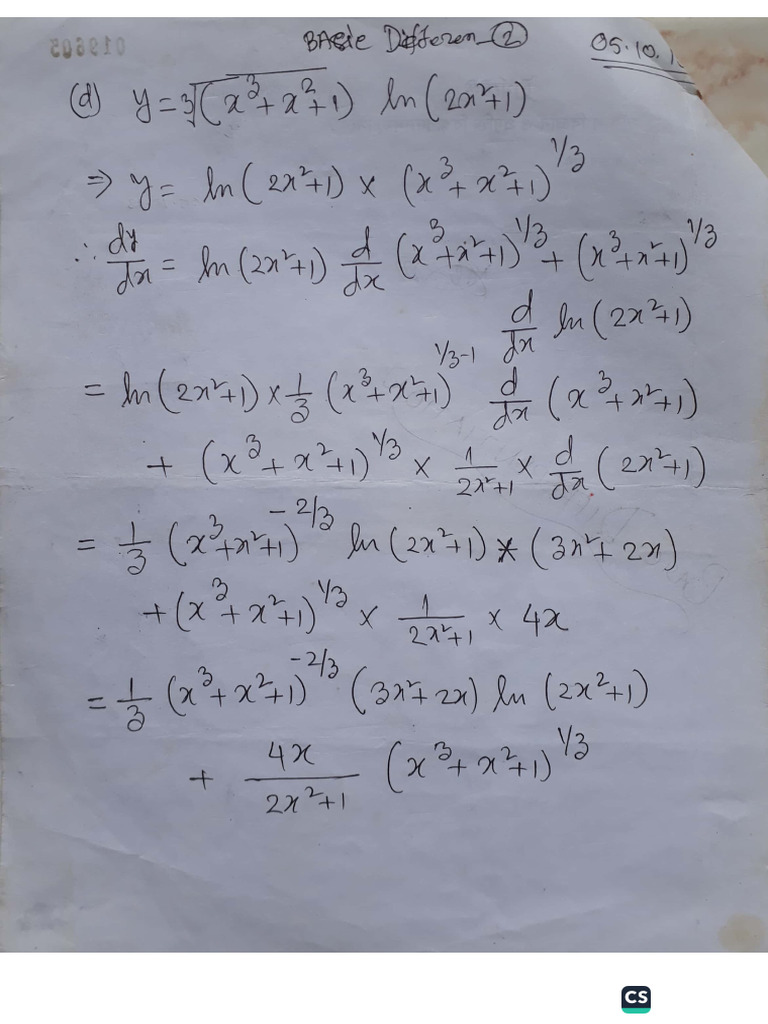 019605
BAsie Differen - ②
05.10.1
(d) y = ∛(x³+x²+1) ln(2x²+1)
⇒ y = ln(2x²+1) × (x³+x²+1)^1/3
∴ dy/dx = ln(2x²+1) d/dx (x³+x²+1)^1/3 + (x³+x²+1)^1/3
d/dx ln(2x²+1)
= ln(2x²+1) × 1/3 (x³+x²+1)^1/3-1 d/dx (x³+x²+1)
+ (x³+x²+1)^1/3 × 1/2x²+1 × d/dx (2x²+1)
= 1/3 (x³+x²+1)^-2/3 ln(2x²+1) * (3x²+2x)
+ (x³+x²+1)^1/3 × 1/2x²+1 × 4x
= 1/3 (x³+x²+1)^-2/3 (3x²+2x) ln(2x²+1)
+ 4x/2x²+1 (x³+x²+1)^1/3
CS